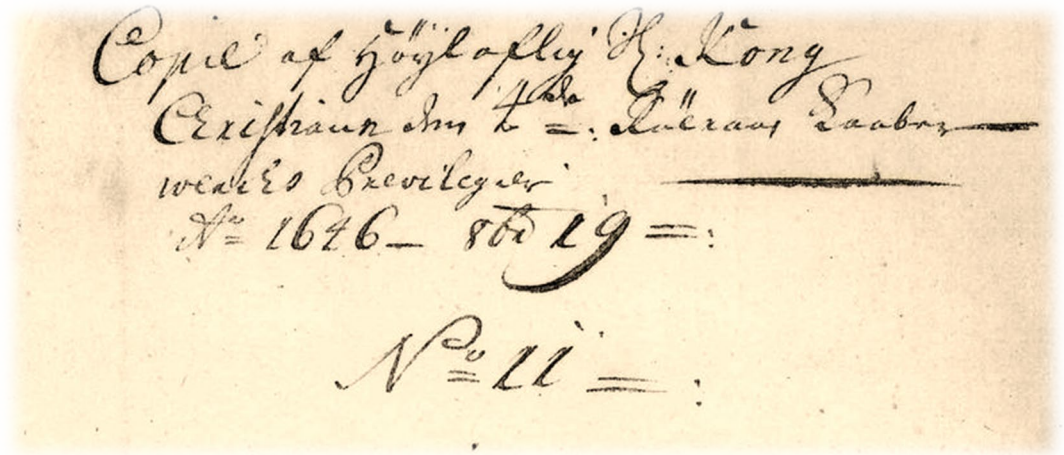 Copie af Höyloflig H: Kong
Christian den 4de: Röeraas Kaaber
wercks Previlegier
Ao 1646 8bd 19 =:
No 11 = :